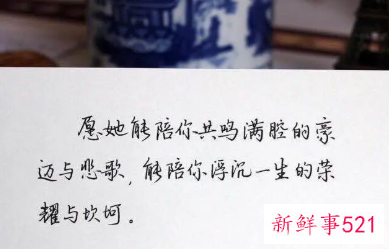 愿她能陪你共鸣满腔的豪
迈与悲歌，能陪你浮沉一生的荣
耀与坎坷。
新鲜事521